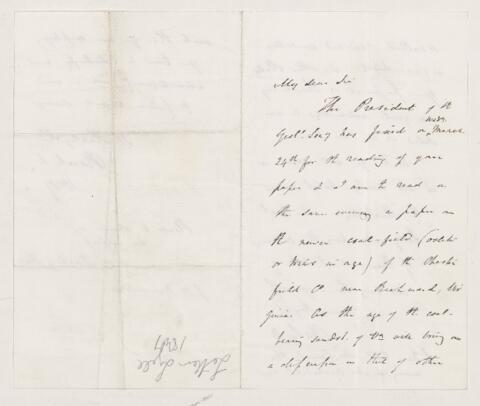 My dear Sir
The President of the
Geol. Socy has fixed on Wedy. March
24th for the reading of your
paper & I am to read on
the same evening a paper on
the newer coal-field (oolite
or trias in age) of the Chester
field Co near Richmond, Vir
ginia. As the age of the coal-
bearing sandst. of Va will bring on
a discussion on that of other
Letter Lyell
1847